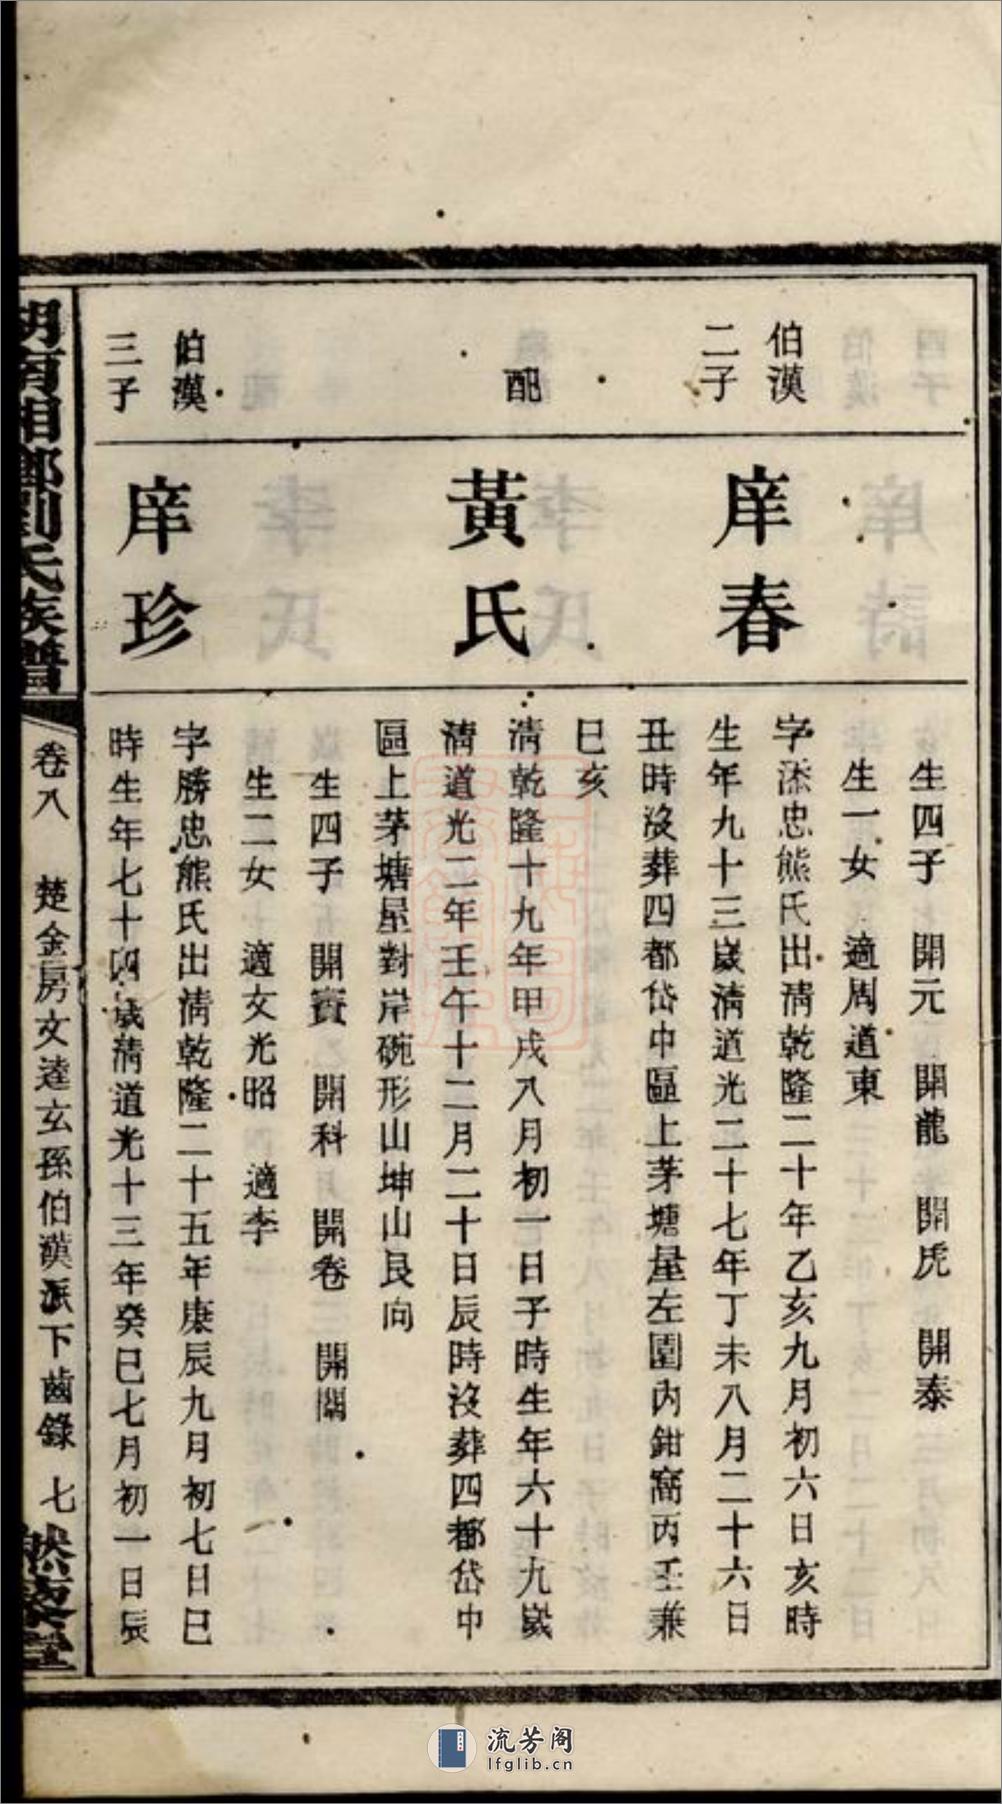 生四子 開元 開龍 開虎 開泰
生一女 適周道東
伯漢
二子
庠春
字添忠熊氏出清乾隆二十年乙亥九月初六日亥時
生年九十三歲清道光二十七年丁未八月二十六日
丑時沒葬四都岱中區上茅塘屋左園內鉗窩丙壬兼
巳亥
配
黃氏
清乾隆十九年甲戌八月初一日子時生年六十九歲
清道光二年壬午十二月二十日辰時沒葬四都岱中
區上茅塘屋對岸碗形山坤山艮向
生四子 開賓 開科 開卷 開關
生二女 適文光昭 適李
伯漢
三子
庠珍
字勝忠熊氏出清乾隆二十五年庚辰九月初七日巳
時生年七十四歲清道光十三年癸巳七月初一日辰
湖南湘鄉劉氏族譜
卷八 楚金房文逵玄孫伯漢派下齒錄 七
然藜堂
流芳阁
lfglib.cn